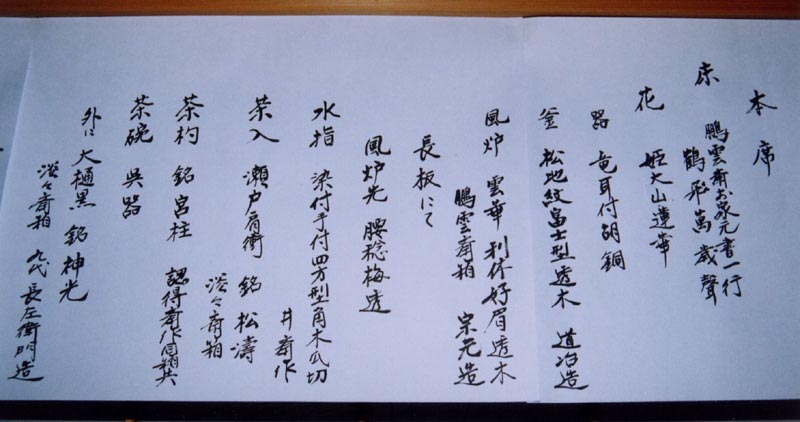 本席
床 鵬雲斎お家元書一行
鶴飛萬歳聲
花 姫大山蓮華
器 竜耳付胡銅
釜 松地紋富士型透木 道冶造
風炉 雲華 利休好眉透木
鵬雲斎箱 宗元造
長板にて
風炉先 腰稔梅透
水指 染付手付四方型角木瓜切
井斎作
茶入 瀬戸肩衝 銘 松濤
淡々斎箱
茶杓 銘 宮柱 認得斎作同箱共
茶碗 呉器
外に 大樋黒 銘 神光
淡々斎箱 九代 長左衛門造